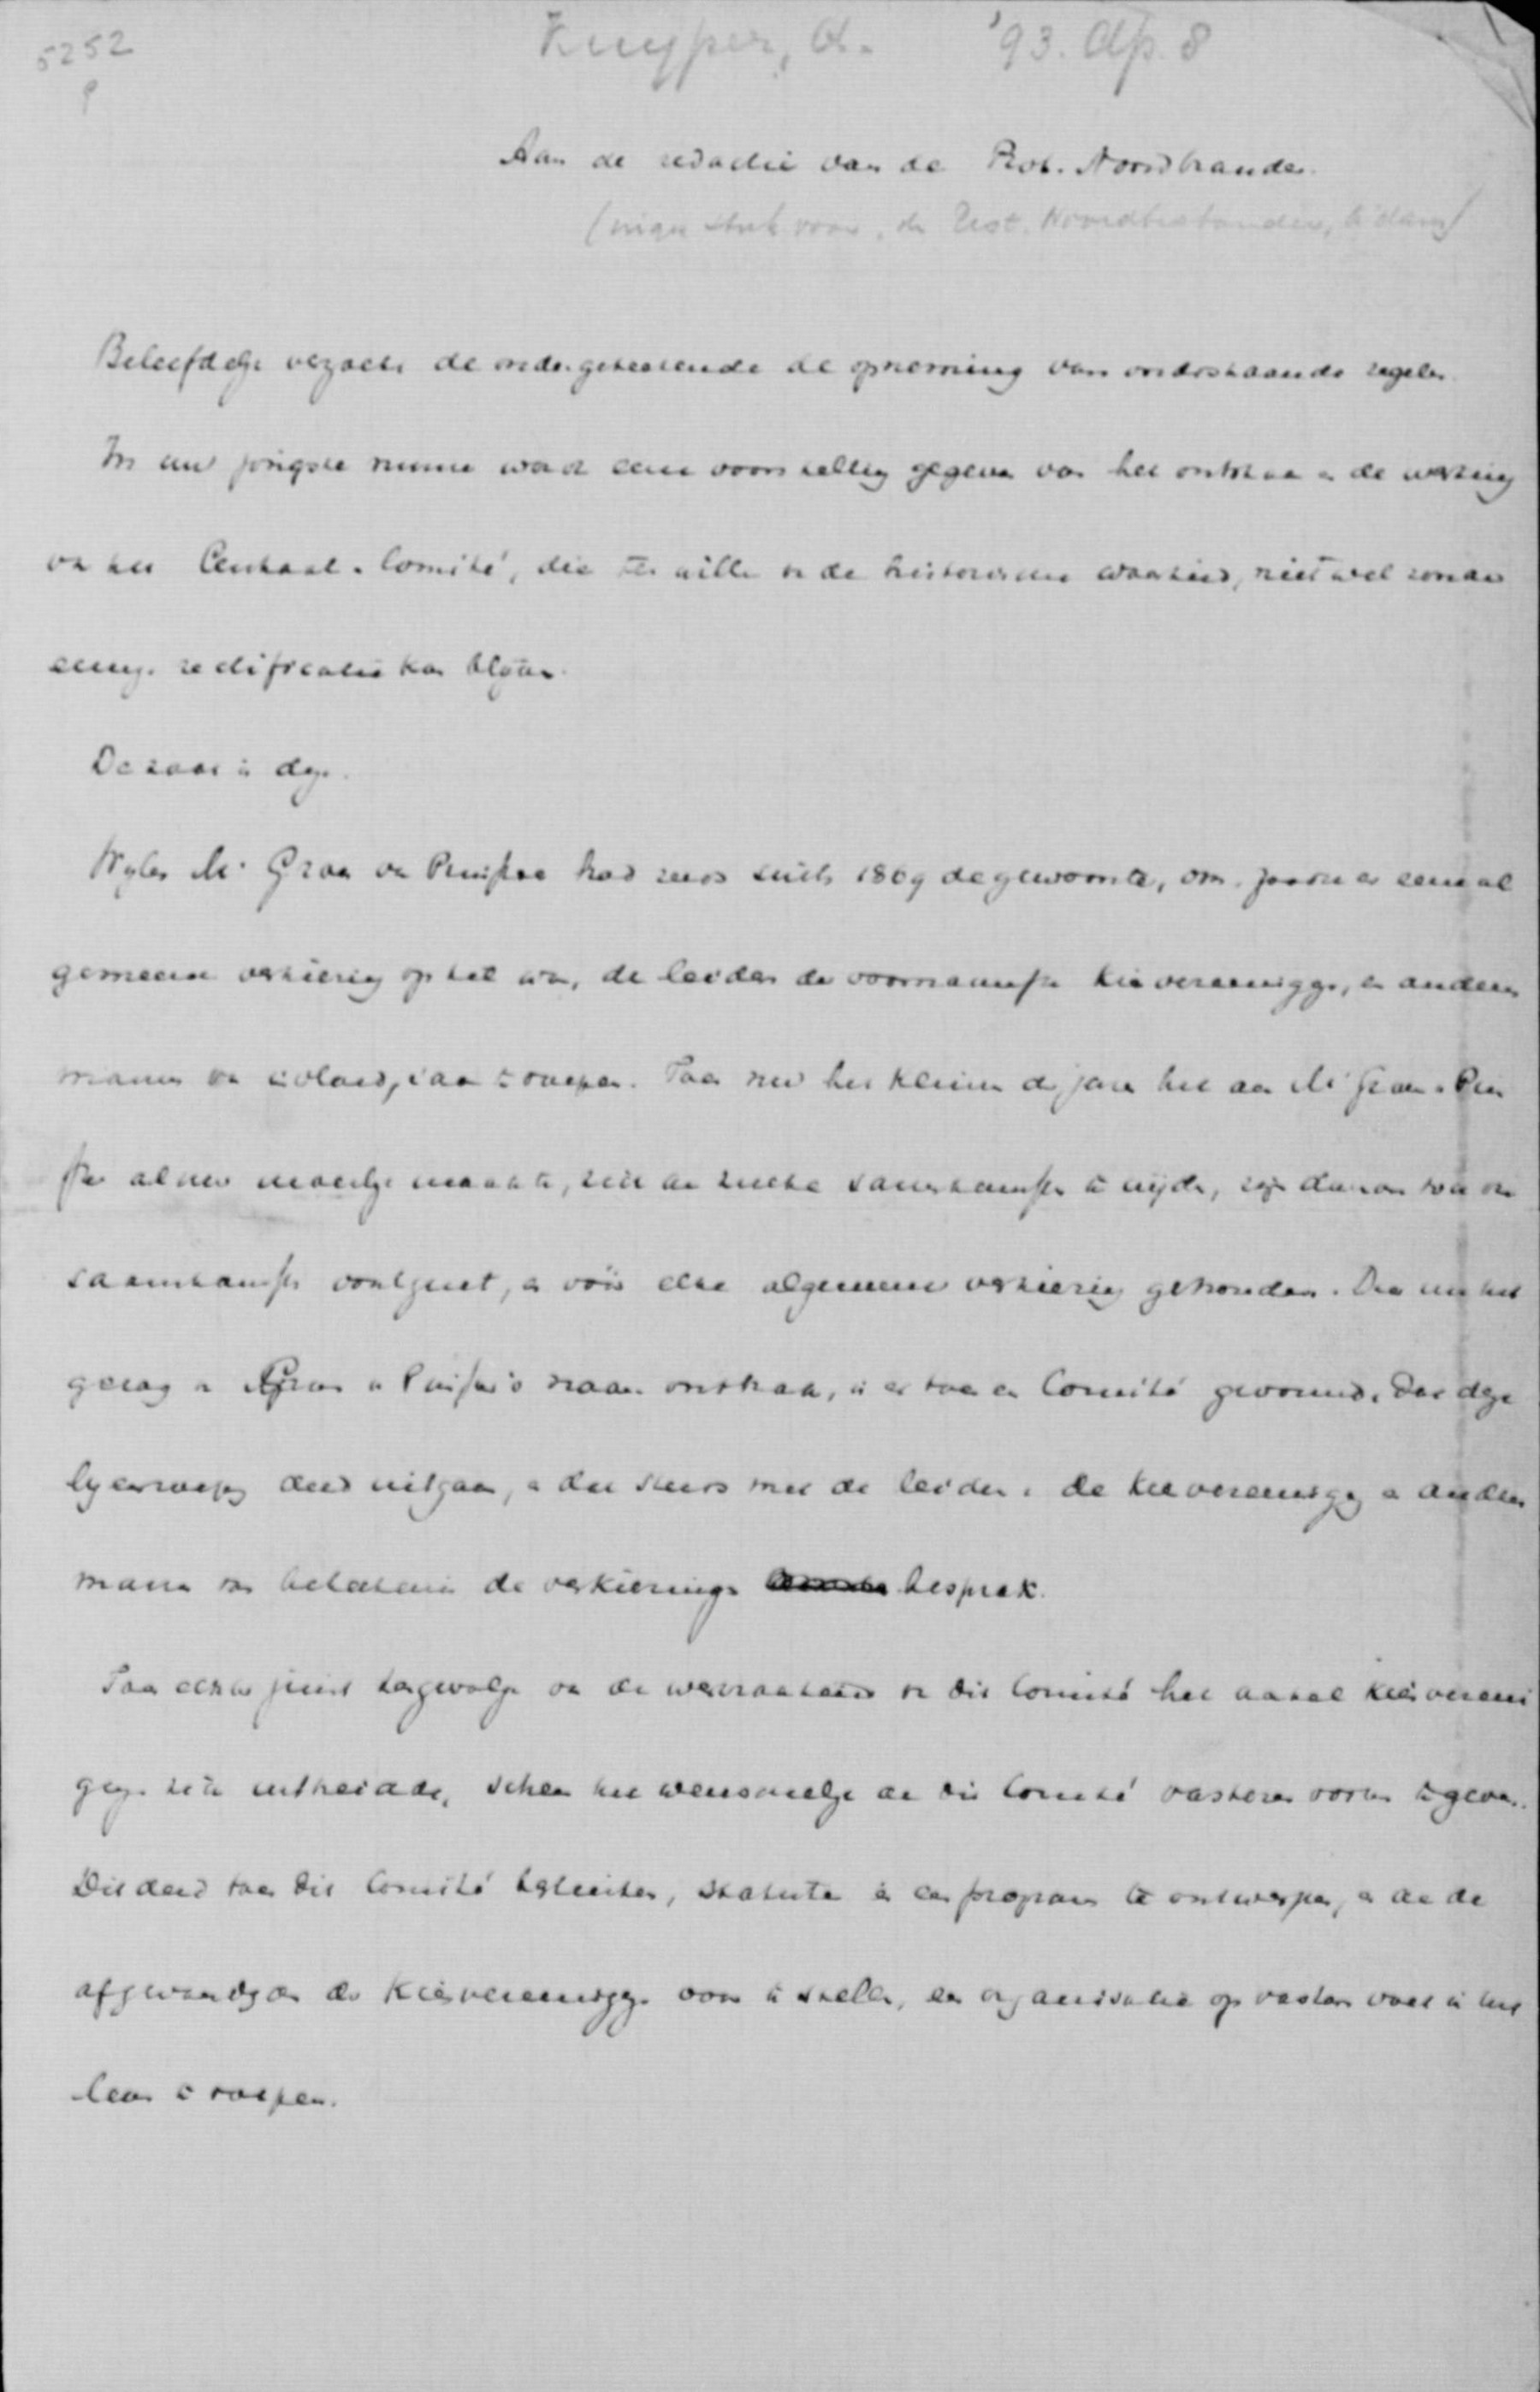 5252
Kuyper, A. '93. Ap. 8
Aan de redactie van de Prot. Noordbrander.
voor de Prot. Noordbrabander,
Beleefdelijk verzoekt de ondergeteekende de opneming van onderstaande regelen.
In uw jongste nummer werd eene voorstelling gegeven van het ontstaan en de werking
van het Centraal-Comité, die ter wille van de historische waarheid, niet wel zonder
eenige rectificatie kan blijven.
De zaak is deze.
Wijlen Mr Groen van Prinsterer had reeds sinds 1869 de gewoonte, om, zoodra er eene al
gemeene verkiezing op til was, de leiders der voornaamste kiesvereenigingen, en andere
mannen van invloed, saam te roepen. Toen nu het klimmen der jaren het aan Mr Groen v. Prin
sterer almeer moeilijk maakte, zich aan zulke samenkomsten te wijden, zijn daarom toch die
saamkomsten voortgezet, en vóór elke algemeene verkiezing gehouden. Daar nu het
gezag van Groen v. Prinsterer's naam ontbrak, is er toen een Comité gevormd, dat deze
bijeenroeping deed uitgaan, en dat steeds met de leiders der kiesvereenigingen en andere
mannen van beteekenis de verkiezingen besprak.
Toen echter juist tengevolge van de werkzaamheid van dit Comité het aantal kiesvereeni
gingen zich uitbreidde, scheen het wenschelijk aan dit Comité vasteren vorm te geven.
Dit deed toen dit Comité besluiten, statuten en een program te ontwerpen, en aan de
afgevaardigden der Kiesvereenigingen voor te stellen, een organisatie op vasten voet in het
leven te roepen.